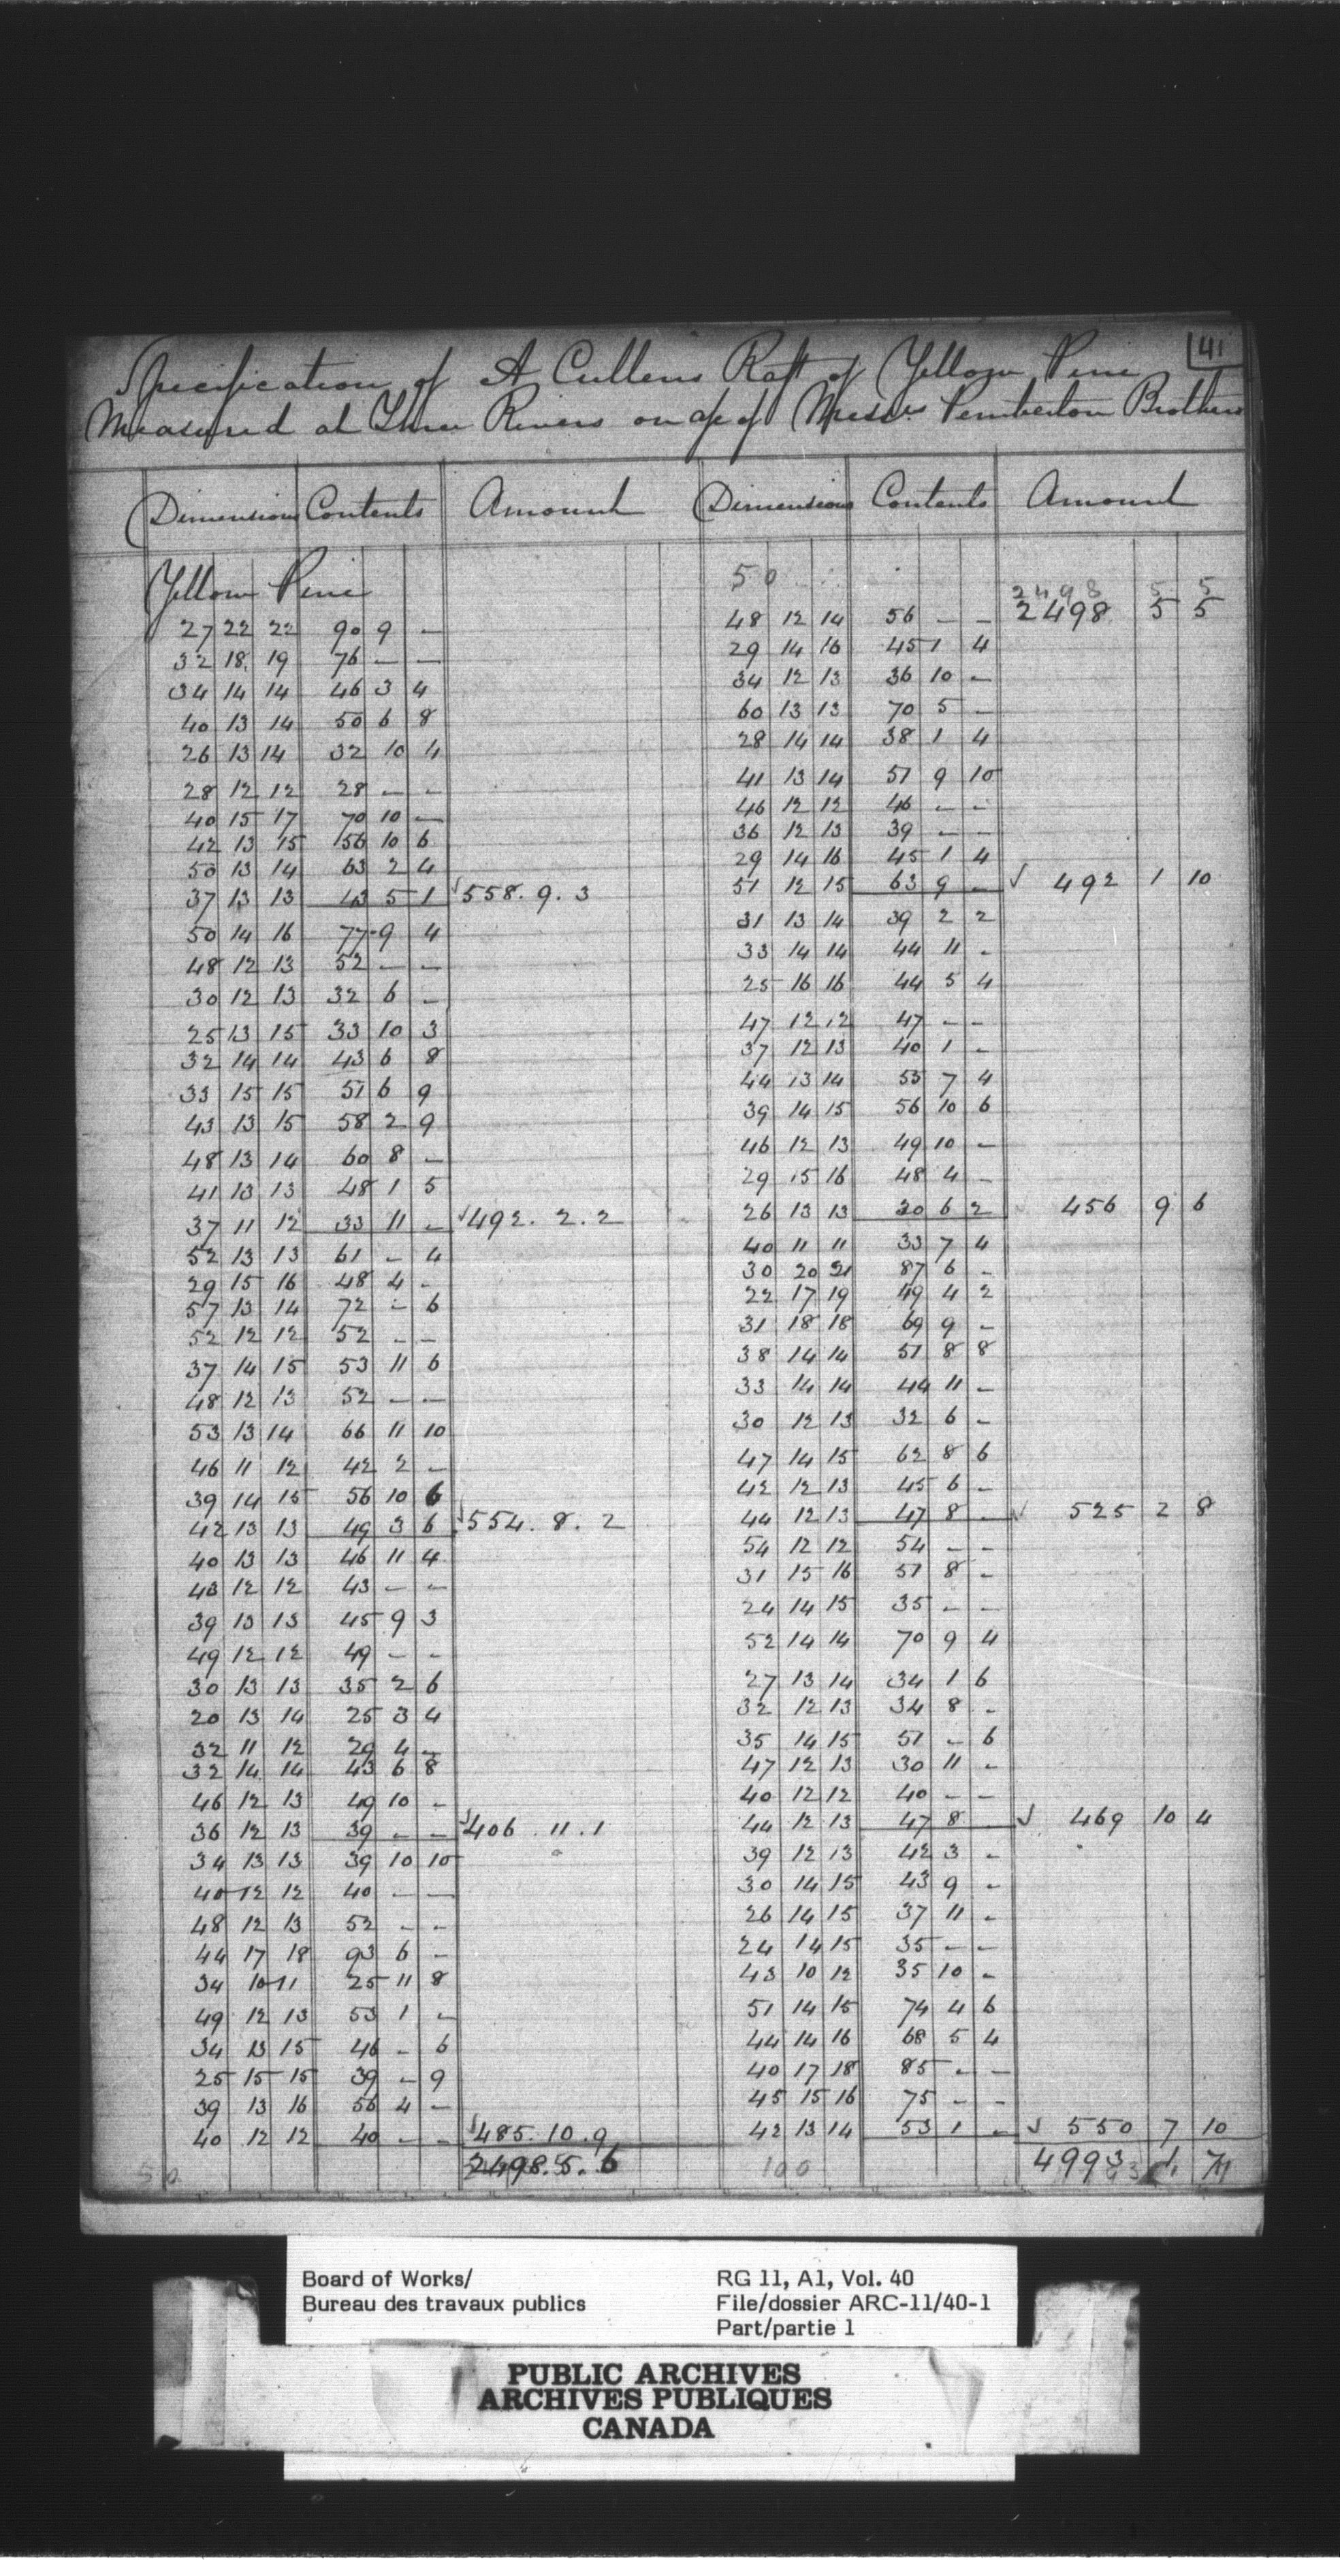 41
Specification of A Cullens Raft of Yellow Pine
Measured at Three Rivers on a/c of Messrs Pemberton Brothers
Dimensions Contents Amount
Yellow Pine
27 22 22 90 9 –
32 18 19 76 – –
34 14 14 46 3 4
40 13 14 50 6 8
26 13 14 32 10 4
28 12 12 28 – –
40 15 17 70 10 –
42 13 15 56 10 6
50 13 14 63 2 4
37 13 13 43 5 1 √558. 9. 3
50 14 16 77 9 4
48 12 13 52 – –
30 12 13 32 6 –
25 13 15 33 10 3
32 14 14 43 6 8
33 15 15 51 6 9
43 13 15 58 2 9
48 13 14 60 8 –
41 13 13 48 1 5
37 11 12 33 11 – √492. 2. 2
52 13 13 61 – 4
29 15 16 48 4 –
57 13 14 72 – 6
52 12 12 52 – –
37 14 15 53 11 6
48 12 13 52 – –
53 13 14 66 11 10
46 11 12 42 2 –
39 14 15 56 10 6
42 13 13 49 3 6 √554. 8. 2
40 13 13 46 11 4
43 12 12 43 – –
39 13 13 45 9 3
49 12 12 49 – –
30 13 13 35 2 6
20 13 14 25 3 4
32 11 12 29 4 –
32 14 14 43 6 8
46 12 13 49 10 –
36 12 13 39 – – √406. 11. 1
34 13 13 39 10 10
40 12 12 40 – –
48 12 13 52 – –
44 17 18 93 6 –
34 10 11 25 11 8
49 12 13 53 1 –
34 13 15 46 – 6
25 15 15 39 – 9
39 13 16 56 4 –
40 12 12 40 – – √485. 10. 9
50 2498. 5. 6
Dimensions Contents Amount
50 2498 5 5
48 12 14 56 – – 2498 5 5
29 14 16 45 1 4
34 12 13 36 10 –
60 13 13 70 5 –
28 14 14 38 1 4
41 13 14 51 9 10
46 12 12 46 – –
36 12 13 39 – –
29 14 16 45 1 4
51 12 15 63 9 – √ 492 1 10
31 13 14 39 2 2
33 14 14 44 11 –
25 16 16 44 5 4
47 12 12 47 – –
37 12 13 40 1 –
44 13 14 55 7 4
39 14 15 56 10 6
46 12 13 49 10 –
29 15 16 48 4 –
26 13 13 30 6 2 √ 456 9 6
40 11 11 33 7 4
30 20 21 87 6 –
22 17 19 49 4 2
31 18 18 69 9 –
38 14 14 51 8 8
33 14 14 44 11 –
30 12 13 32 6 –
47 14 15 62 8 6
42 12 13 45 6 –
44 12 13 47 8 – √ 525 2 8
54 12 12 54 – –
31 15 16 51 8 –
24 14 15 35 – –
52 14 14 70 9 4
27 13 14 34 1 6
32 12 13 34 8 –
35 14 15 51 – 6
47 12 13 50 11 –
40 12 12 40 – –
44 12 13 47 8 – √ 469 10 4
39 12 13 42 3 –
30 14 15 43 9 –
26 14 15 37 11 –
24 14 15 35 – –
43 10 12 35 10 –
51 14 15 74 4 6
44 14 16 68 5 4
40 17 18 85 – –
45 15 16 75 – –
42 13 14 53 1 – √ 550 7 10
100 4993
Board of Works/
Bureau des travaux publics
RG 11, A1, Vol. 40
File/dossier ARC-11/40-1
Part/partie 1
PUBLIC ARCHIVES
ARCHIVES PUBLIQUES
CANADA